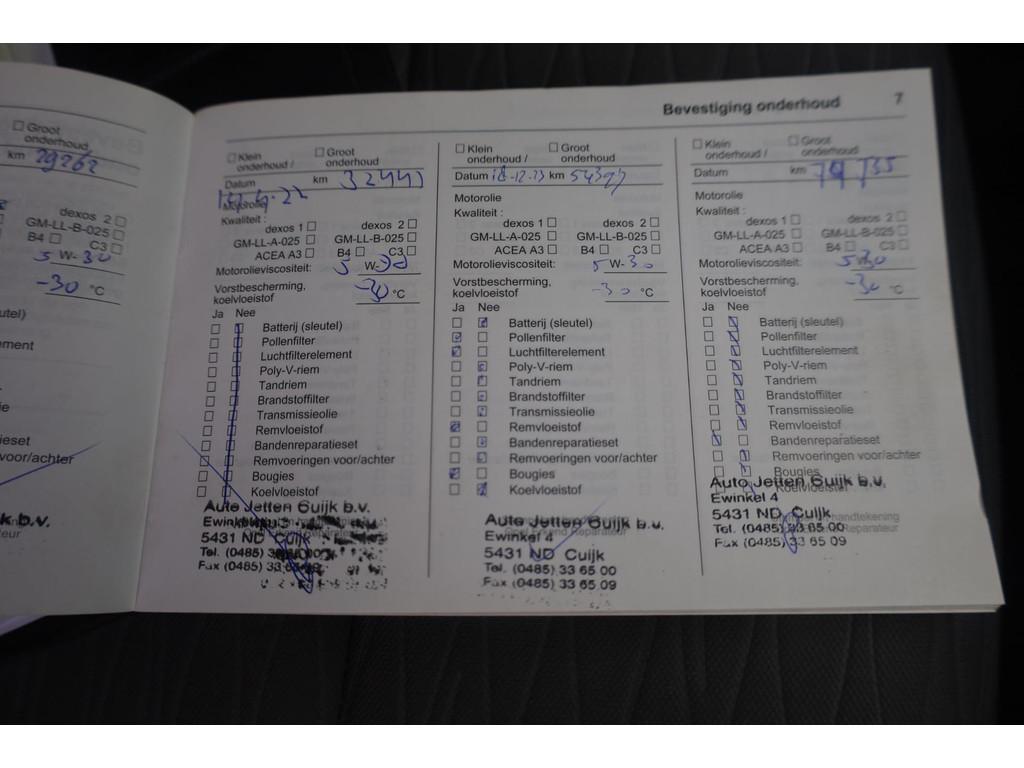 Bevestiging onderhoud 7
☐ Groot
onderhoud
km 29262
dexos 2 ☐
GM-LL-B-025 ☐
B4 ☐ C3 ☐
5 W-30
-30 °C
utel)
ement
e
ieset
voor/achter
k b.v.
ateur
☐ Klein ☐ Groot
onderhoud / onderhoud
Datum km
Motorolie
Kwaliteit :
dexos 1 ☐ dexos 2 ☐
GM-LL-A-025 ☐ GM-LL-B-025 ☐
ACEA A3 ☐ B4 ☐ C3 ☐
Motorolieviscositeit: 5 W-30
Vorstbescherming,
koelvloeistof -30 °C
Ja Nee
Batterij (sleutel)
Pollenfilter
Luchtfilterelement
Poly-V-riem
Tandriem
Brandstoffilter
Transmissieolie
Remvloeistof
Bandenreparatieset
Remvoeringen voor/achter
Bougies
Koelvloeistof
Auto Jetten Cuijk b.v.
5431 ND Cuijk
Tel. (0485)
Fax (0485) 33 65 09
☐ Klein ☐ Groot
onderhoud / onderhoud
Datum 18-12-23 km 54397
Motorolie
Kwaliteit :
dexos 1 ☐ dexos 2 ☐
GM-LL-A-025 ☐ GM-LL-B-025 ☐
ACEA A3 ☐ B4 ☐ C3 ☐
Motorolieviscositeit: 5 W-30
Vorstbescherming,
koelvloeistof -30 °C
Ja Nee
Batterij (sleutel)
Pollenfilter
Luchtfilterelement
Poly-V-riem
Tandriem
Brandstoffilter
Transmissieolie
Remvloeistof
Bandenreparatieset
Remvoeringen voor/achter
Bougies
Koelvloeistof
Auto Jetten Cuijk b.v.
Ewinkel 4
5431 ND Cuijk
Tel. (0485) 33 65 00
Fax (0485) 33 65 09
☐ Klein ☐ Groot
onderhoud / onderhoud
Datum km
Motorolie
Kwaliteit :
dexos 1 ☐ dexos 2 ☐
GM-LL-A-025 ☐ GM-LL-B-025 ☐
ACEA A3 ☐ B4 ☐ C3 ☐
Motorolieviscositeit: 5 W-30
Vorstbescherming,
koelvloeistof -30 °C
Ja Nee
Batterij (sleutel)
Pollenfilter
Luchtfilterelement
Poly-V-riem
Tandriem
Brandstoffilter
Transmissieolie
Remvloeistof
Bandenreparatieset
Remvoeringen voor/achter
Bougies
Koelvloeistof
Auto Jetten Cuijk b.v.
Ewinkel 4
5431 ND Cuijk handtekening
Tel. (0485) 33 65 00 Reparateur
Fax (0485) 33 65 09